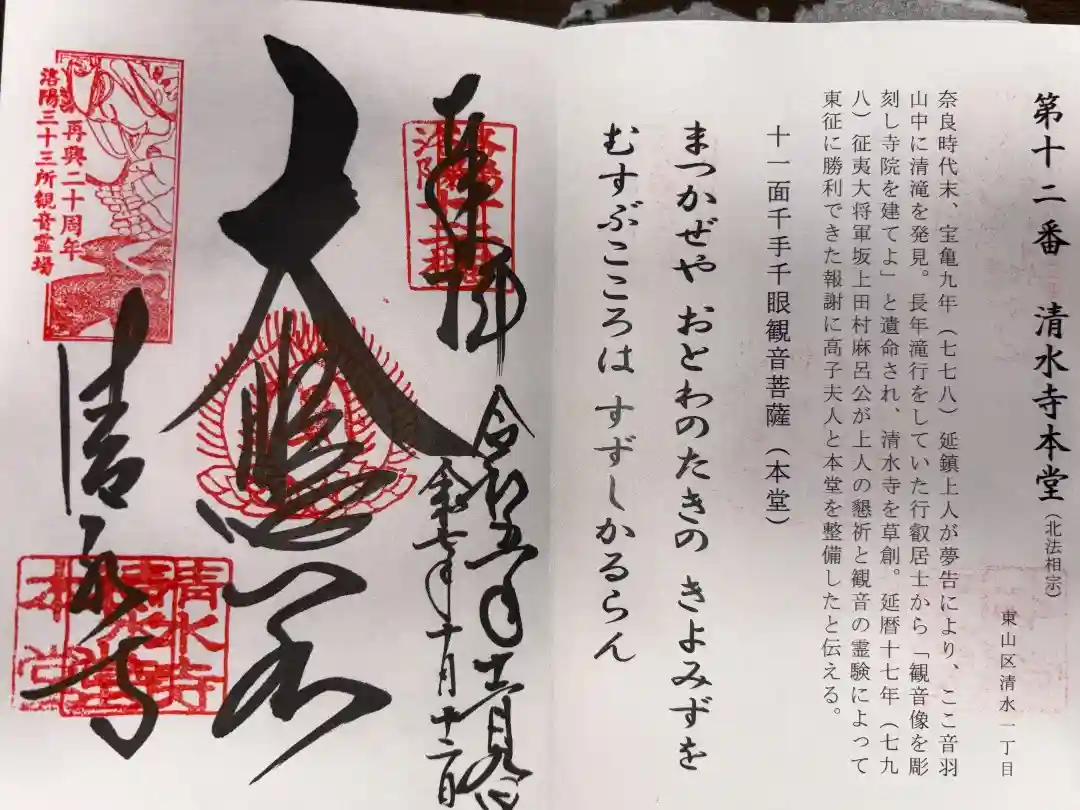 第十二番 清水寺本堂(北法相宗)
東山区清水一丁目
奈良時代末、宝亀九年(七七八)延鎮上人が夢告により、ここ音羽
山中に清滝を発見。長年滝行をしていた行叡居士から「観音像を彫
刻し寺院を建てよ」と遺命され、清水寺を草創。延暦十七年(七九
八)征夷大将軍坂上田村麻呂公が上人の懇祈と観音の霊験によって
東征に勝利できた報謝に高子夫人と本堂を整備したと伝える。
十一面千手千眼観音菩薩(本堂)
まつかぜや おとわのたきの きよみずを
むすぶこころは すずしかるらん
奉拝
令和五年
令和七年十月十二日
大悲閣
清水寺
再興二十周年
洛陽三十三所観音霊場
清水寺
本堂